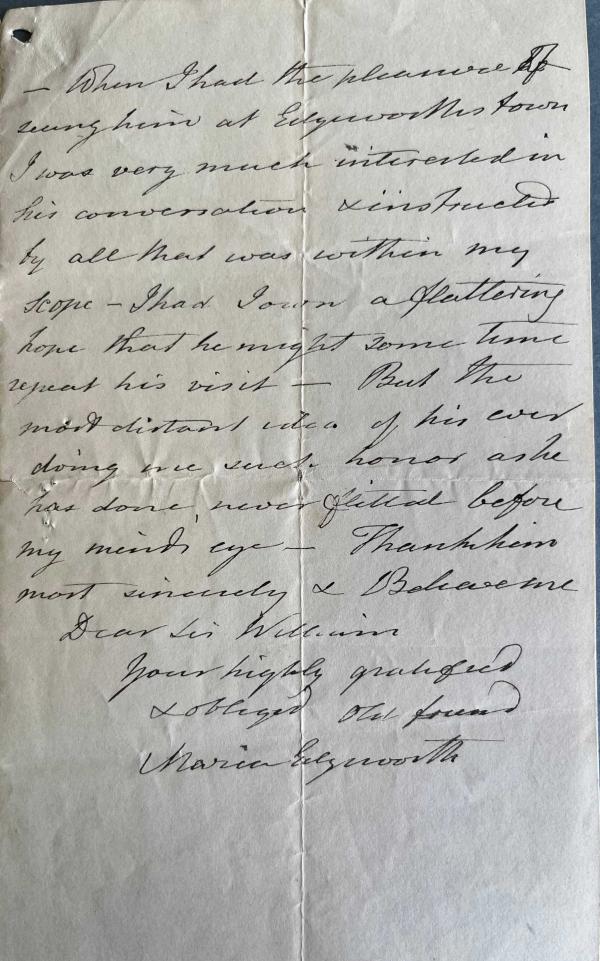 – When I had the pleasure of
seeing him at Edgeworthstown
I was very much interested in
his conversation & instructed
by all that was within my
scope – I had I own a flattering
hope that he might some time
repeat his visit – But the
most distant idea of his ever
doing me such honor as he
has done, never flitted before
my mind's eye – Thank him
most sincerely & Believe me
Dear Sir William
Your highly gratified
& obliged old friend
Maria Edgeworth